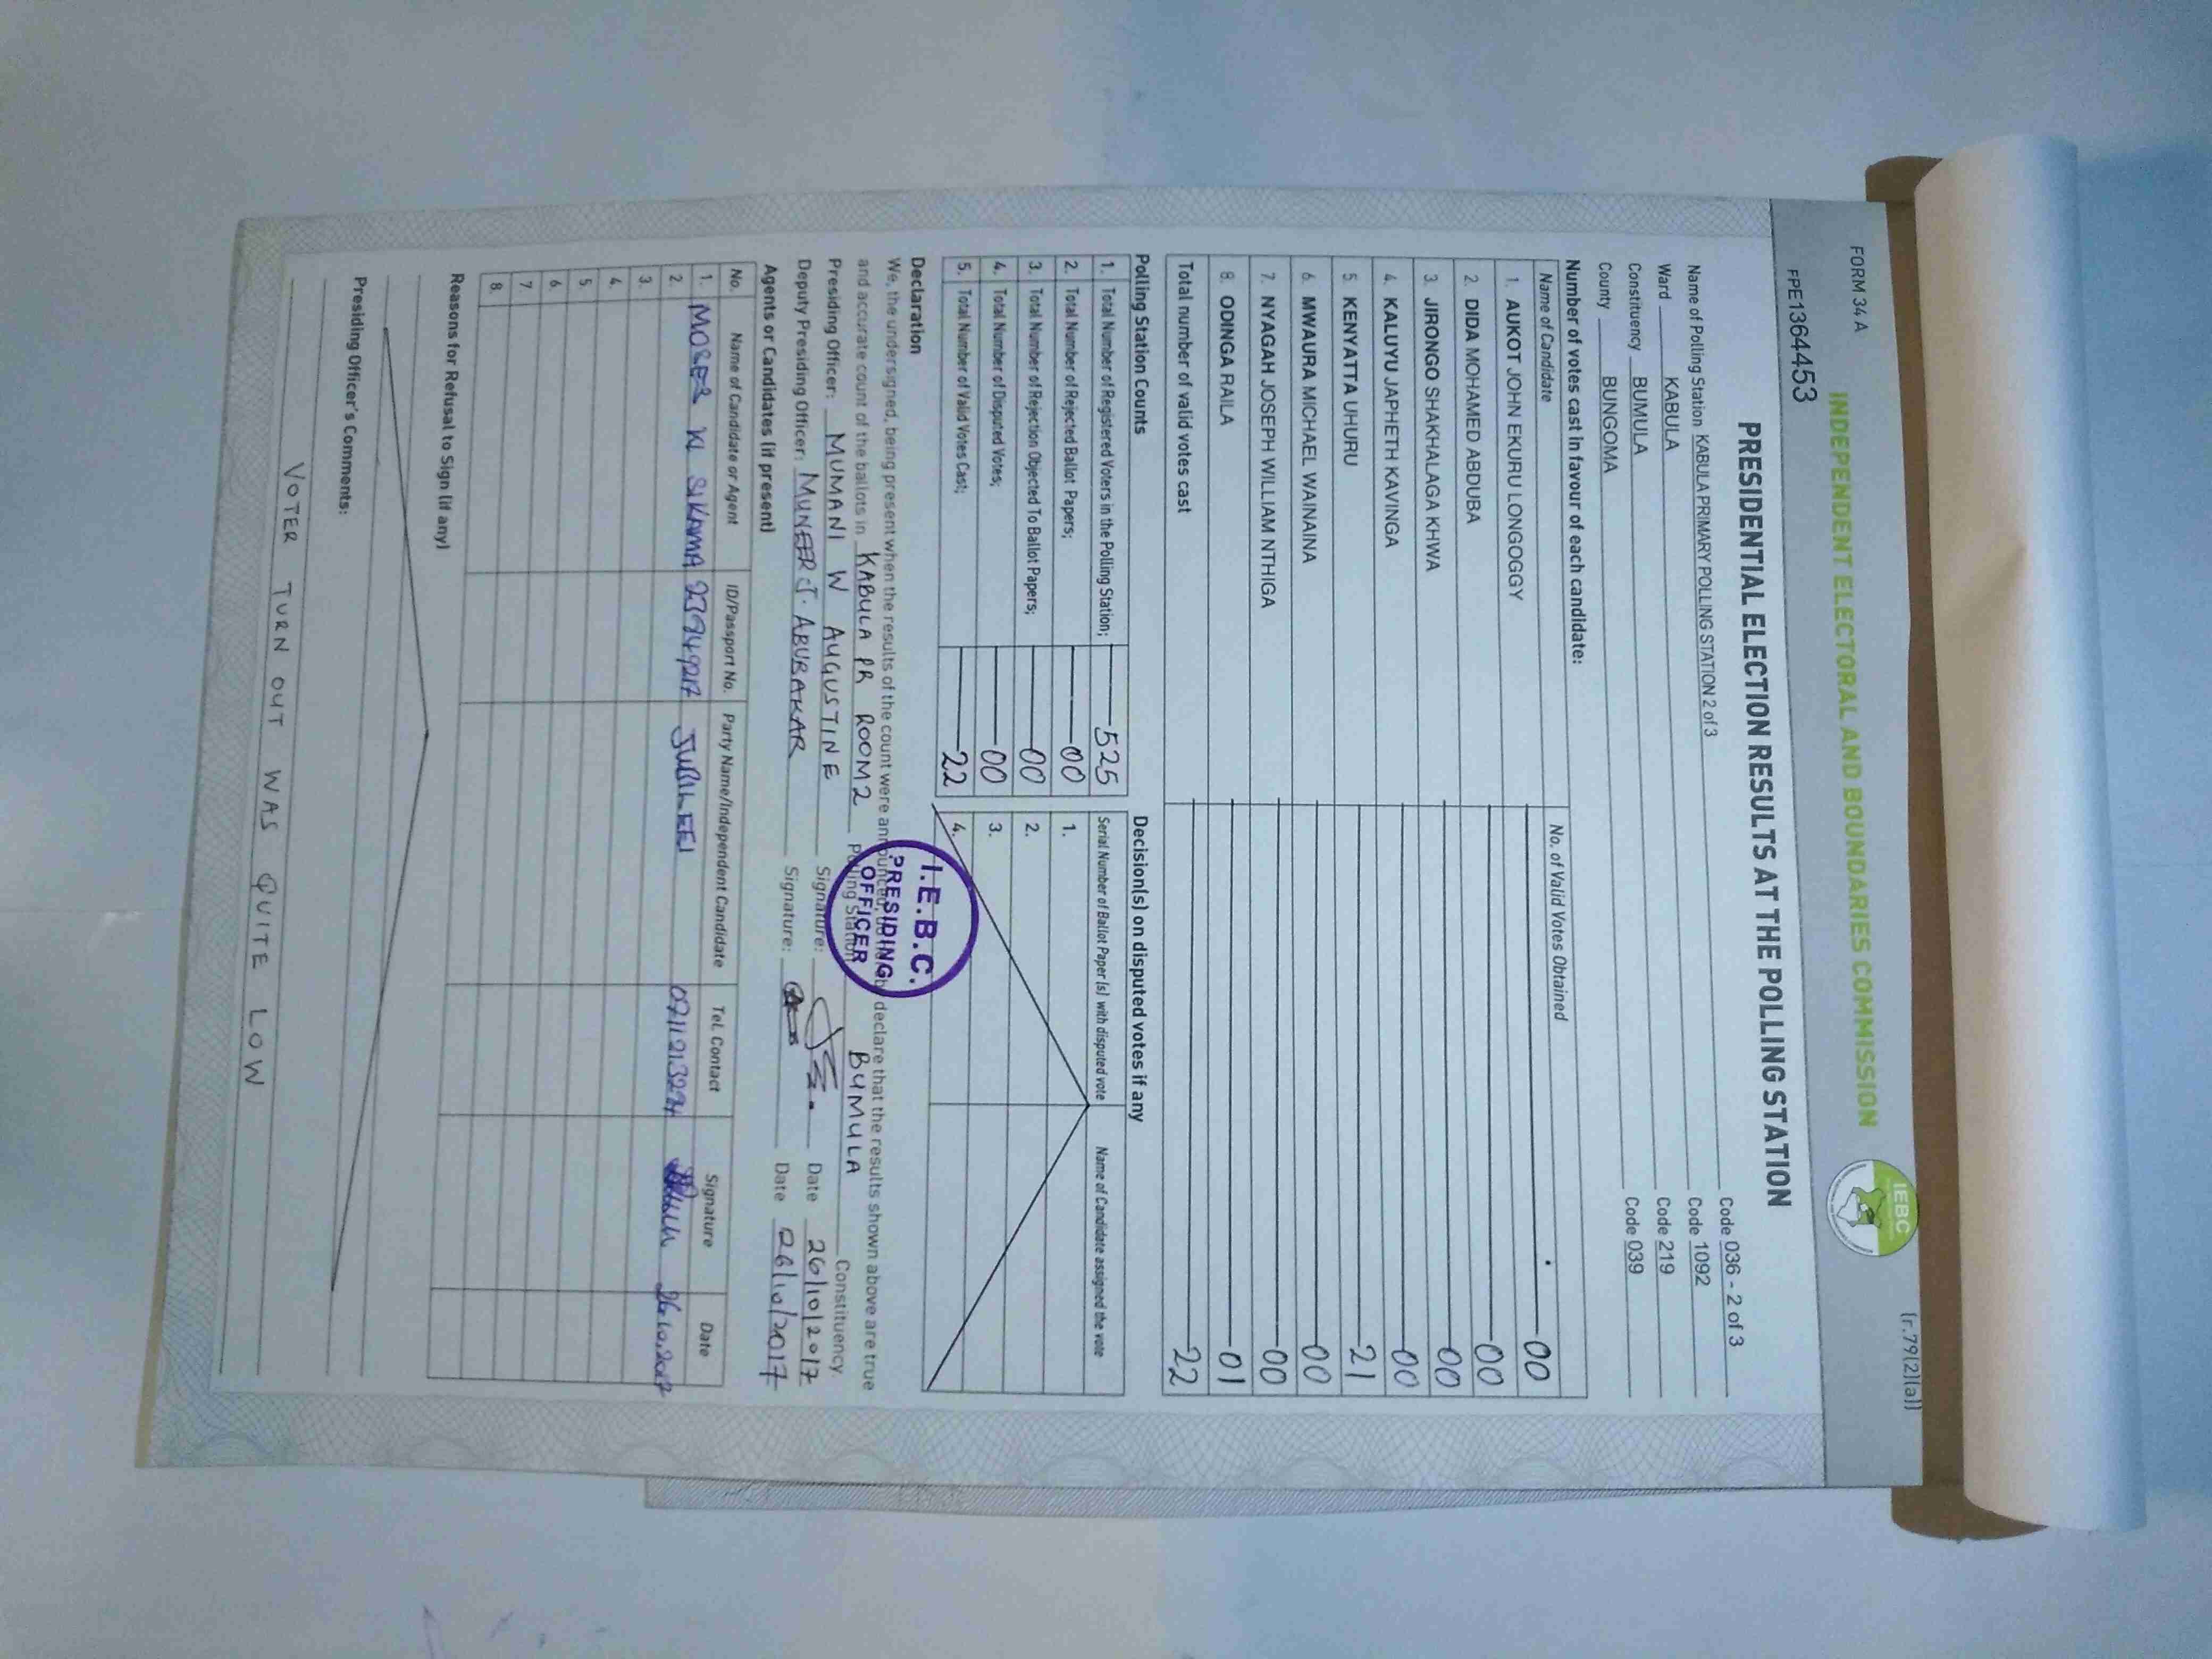 FORM 34 A
(r.79(2)(a))
INDEPENDENT ELECTORAL AND BOUNDARIES COMMISSION
IEBC
FPE1364453
PRESIDENTIAL ELECTION RESULTS AT THE POLLING STATION
Name of Polling Station KABULA PRIMARY POLLING STATION 2 of 3 Code 036 - 2 of 3
Ward KABULA Code 1092
Constituency BUMULA Code 219
County BUNGOMA Code 039
Number of votes cast in favour of each candidate:
Name of Candidate No. of Valid Votes Obtained
1. AUKOT JOHN EKURU LONGOGGY 00
2. DIDA MOHAMED ABDUBA 00
3. JIRONGO SHAKHALAGA KHWA 00
4. KALUYU JAPHETH KAVINGA 00
5. KENYATTA UHURU 21
6. MWAURA MICHAEL WAINAINA 00
7. NYAGAH JOSEPH WILLIAM NTHIGA 00
8. ODINGA RAILA 01
Total number of valid votes cast 22
Polling Station Counts
1. Total Number of Registered Voters in the Polling Station; 525
2. Total Number of Rejected Ballot Papers; 00
3. Total Number of Rejection Objected To Ballot Papers; 00
4. Total Number of Disputed Votes; 00
5. Total Number of Valid Votes Cast; 22
Decision(s) on disputed votes if any
Serial Number of Ballot Paper (s) with disputed vote Name of Candidate assigned the vote
1.
2.
3.
4.
Declaration
We, the undersigned, being present when the results of the count were announced, do hereby declare that the results shown above are true
and accurate count of the ballots in KABULA PR ROOM 2 Polling Station BUMULA Constituency
Presiding Officer: MUMANI W AUGUSTINE Signature: Date 26/10/2017
Deputy Presiding Officer: MUNEER J. ABUBAKAR Signature: Date 26/10/2017
I.E.B.C.
PRESIDING
OFFICER
Agents or Candidates (if present)
No. Name of Candidate or Agent ID/Passport No. Party Name/Independent Candidate Tel. Contact Signature Date
1. MOSES JUBILEE
2.
3.
4.
5.
6.
7.
8.
Reasons for Refusal to Sign (if any)
Presiding Officer's Comments:
VOTER TURN OUT WAS QUITE LOW